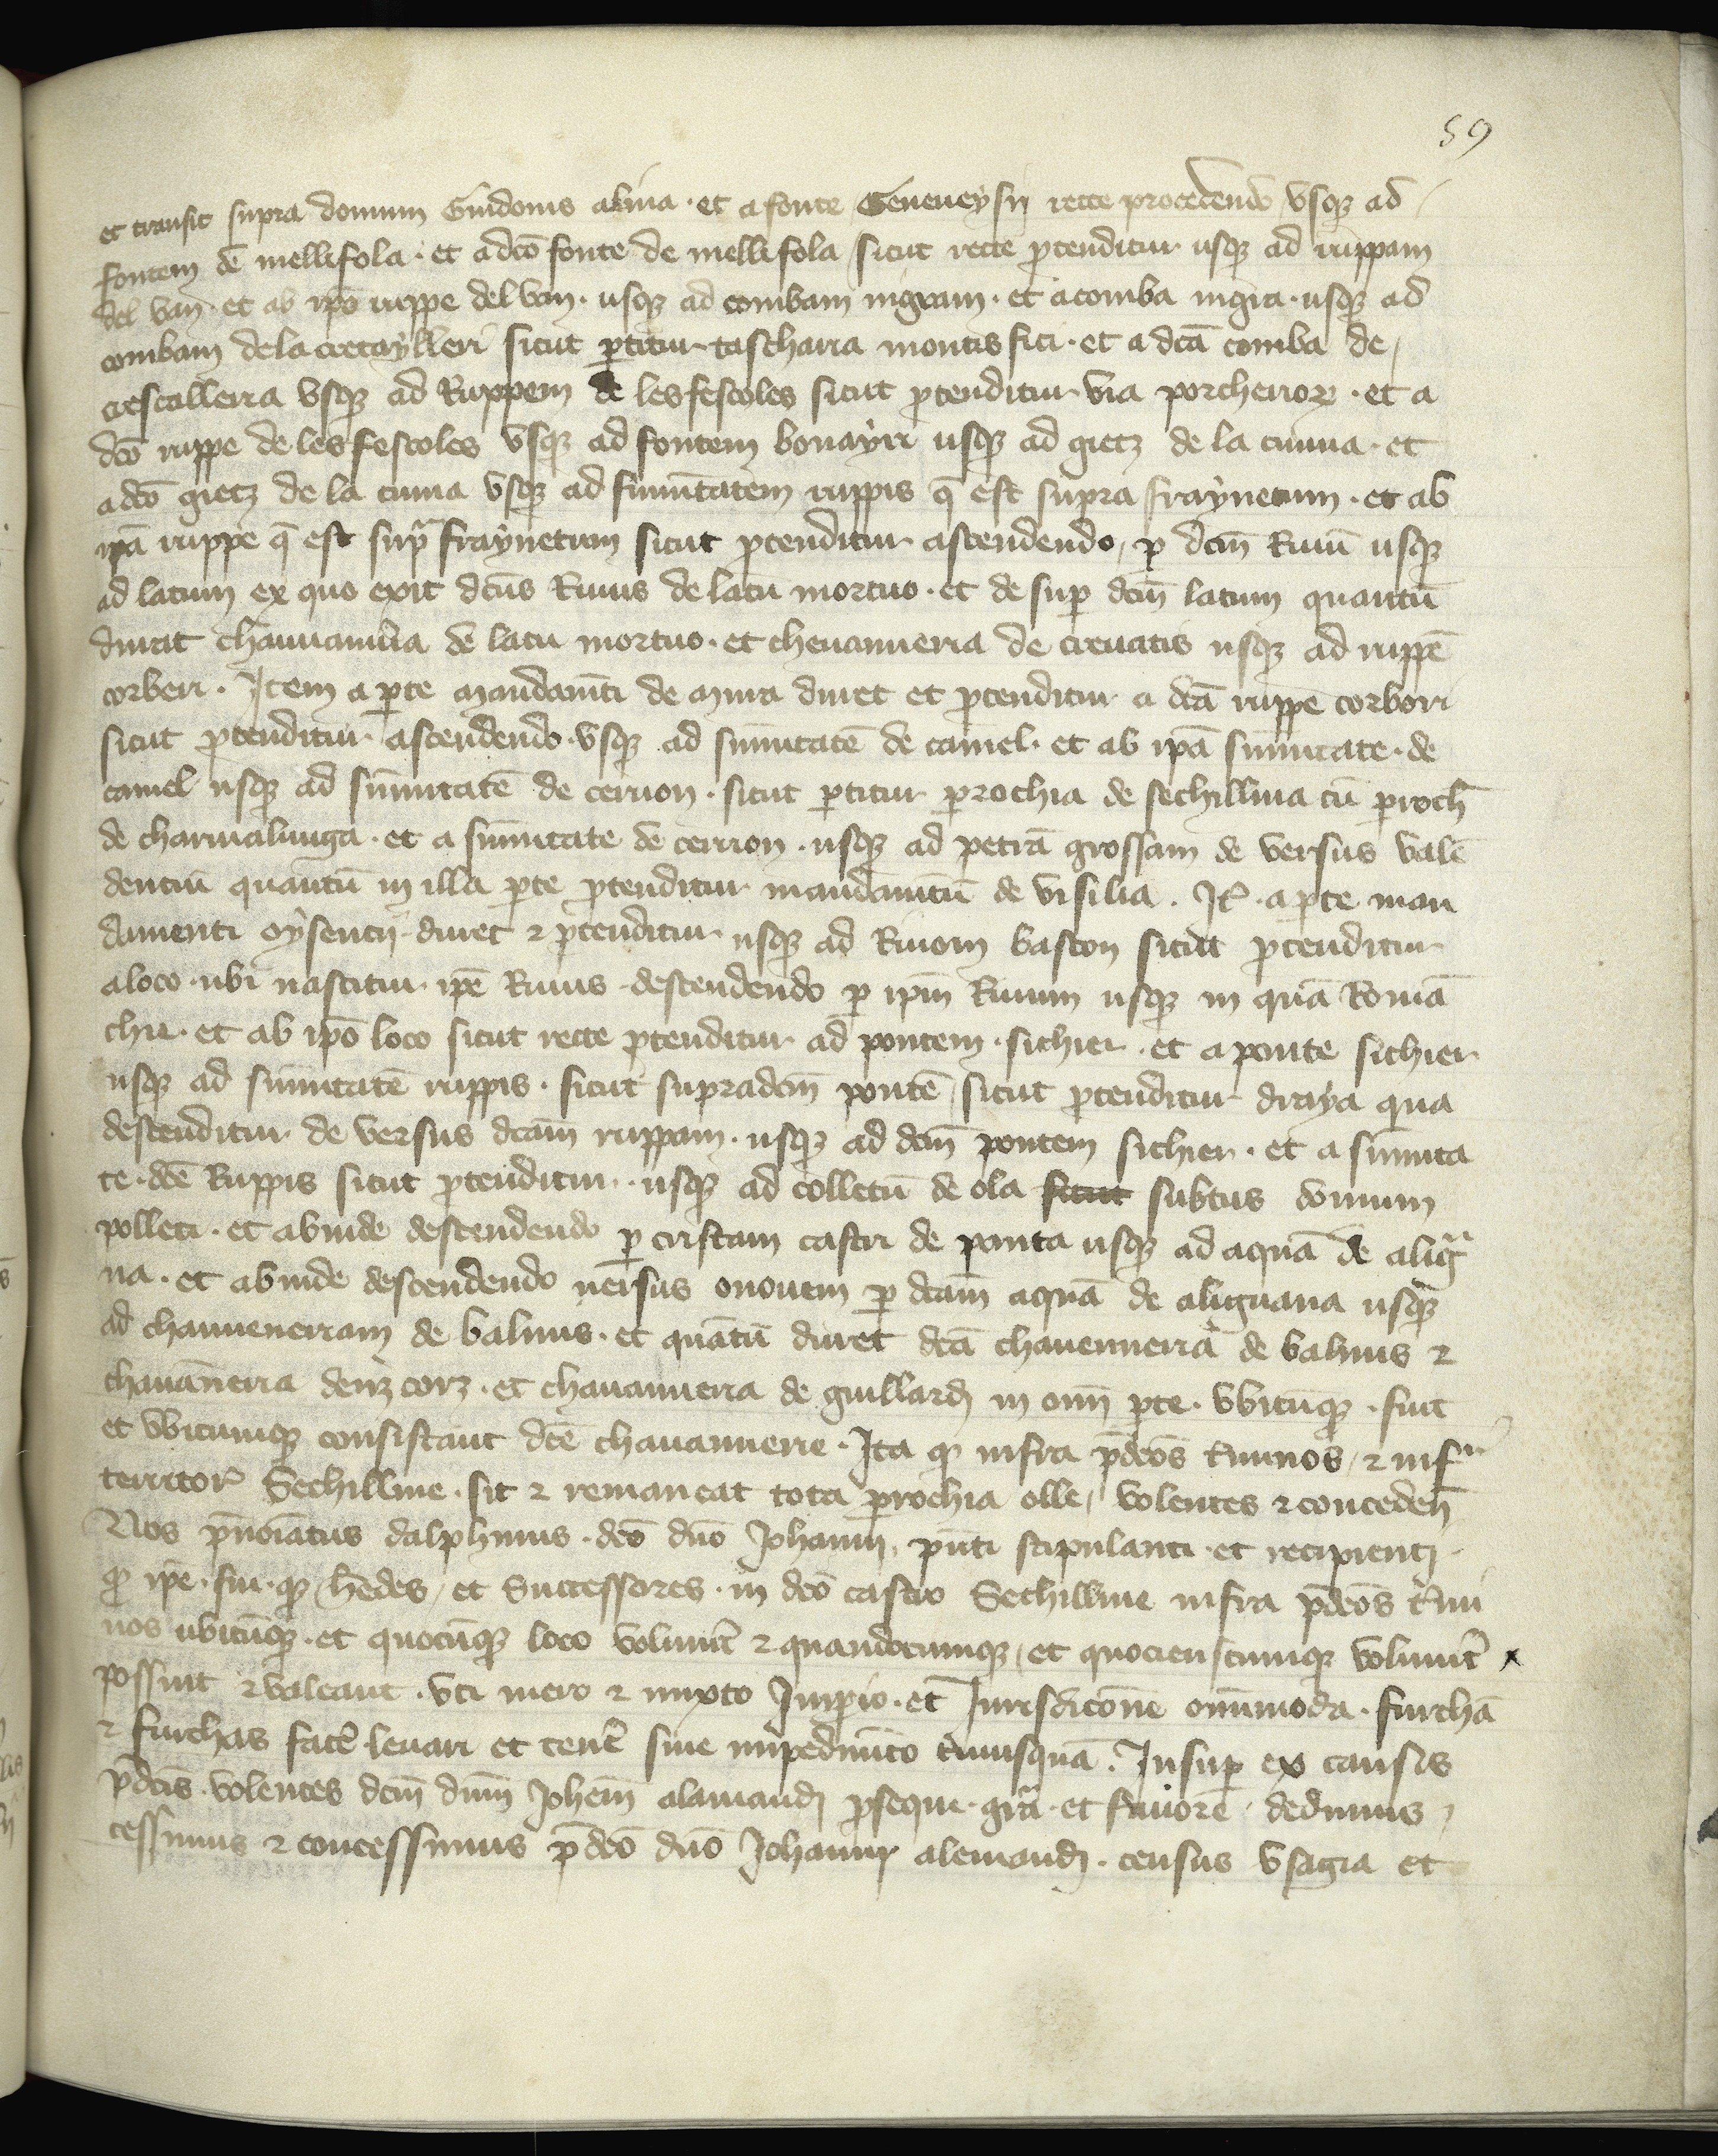 59
et transit supra domum Guidonis alvia · et a fonte Geneveysii recte procedendo vsqz ad
fontem de mellifola · et a dco fonte de mellifola sicut recte ptenditur usqz ad ruppam
del van · et ab ipo ruppe del van · usqz ad combam nigram · et a comba nigra · usqz ad
combam dela cretaylleri sicut ptitur tascharia montis fici · et a dca comba de
crescallerra vsqz ad Ruppem de lesfescoles sicut ptenditur via porcherior · et a
dco ruppe de lesfescoles vsqz ad fontem bonayrr usqz ad gietz de la cuma · et
a dco gietz de la cuma vsqz ad sumitatem ruppis q est supra fraynetum · et ab
ipa ruppe q est supa fraynetum sicut ptenditur ascendendo p dcm Riuu usqz
ad lacum ex quo exit dcus Riuus de lacu mortuo · et de sup dcm lacum quantu
durat chauanaria de lacu mortuo · et chevanneria de crevatis usqz ad ruppe
corberi · Item a pte mandamti de mura duret et ptenditur a dca ruppe corbori
sicut ptenditur ascendendo · vsqz ad sumitate de camel · et ab ipa sumitate · de
camel usqz ad sumitate de cerrion · sicut ptitur prochia de sechillina cu proch
de charnalunga · et a sumitate de cerrion · usqz ad petra grossam de versus vale
denciu quantu in illa pte ptenditur mandamtu de visilia . It · a pte man
damenti oysencii duret z ptenditur usqz ad Riuom baston sicut ptenditur
a loco · ubi nascitur ipe Riuus · descendendo p ipm Riuum usqz in qua Roma
chu · et ab ipo loco sicut recte ptenditur ad pontem · sichier · et a ponte sichier
usqz ad sumitate ruppis · sicut supradcm ponte sicut ptenditur draya qua
descenditur de versus dcam ruppam · usqz ad dcm pontem sichier · et a sumita
te · dce Ruppis sicut ptenditur · usqz ad colletu de ola sicut subtus domum
polleti · et abinde descendendo p cristam castri de ponta usqz ad aqua de alig
na · et abinde descendendo uersus onouem p dcam aqua de aliguana usqz
ad chauuenerram de balmis · et quatu duret dca chauennerra de balmis z
chauanerra denz corz · et chauannerra de guillard in omi pte · vbicuqz · sint
et vbicumqz consistant dce chauannerie · Ita q infra pdcos tminos z inf
territor Sechilline · sit z remaneat tota prochia olle volentes z conceden
Nos pnoiatus dalphinus · dco dno Johanni pnti stipulanti · et recipienti
q ipe · sui · qz hedes et Successores · in dco castro Sechilline infra pdcos tmi
nos ubicuqz · et quocuqz loco volunt z quandocumqz et quocienscumqz volunt x
possint z valeant · vti mero z mixto Impio · et Jurisdicone omimoda · furcha
z furchas face levari et tene sine impedimto cuiusqua . Insup ex causis
pdcis · volentes dcm dnm Johem alamandi psequi · gra · et fauore dedimus
cessimus z concessimus pdco dno Johanni alemandi · census vsagia et